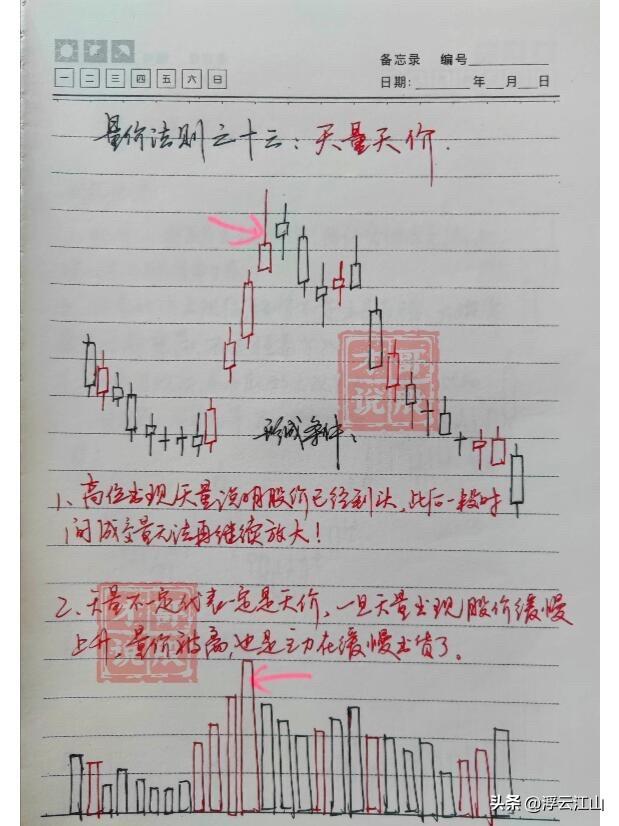 备忘录 编号
一 二 三 四 五 六 日
日期: 年 月 日
量价法则之十三：天量天价.
形成条件：
1、高位出现天量说明股价已经到头，此后一段时
间成交量无法再继续放大！
2、天量不一定代表一定是天价，一旦天量出现股价缓慢
上升，量价背离，也是主力在缓慢出货了。
头条 @浮云江山